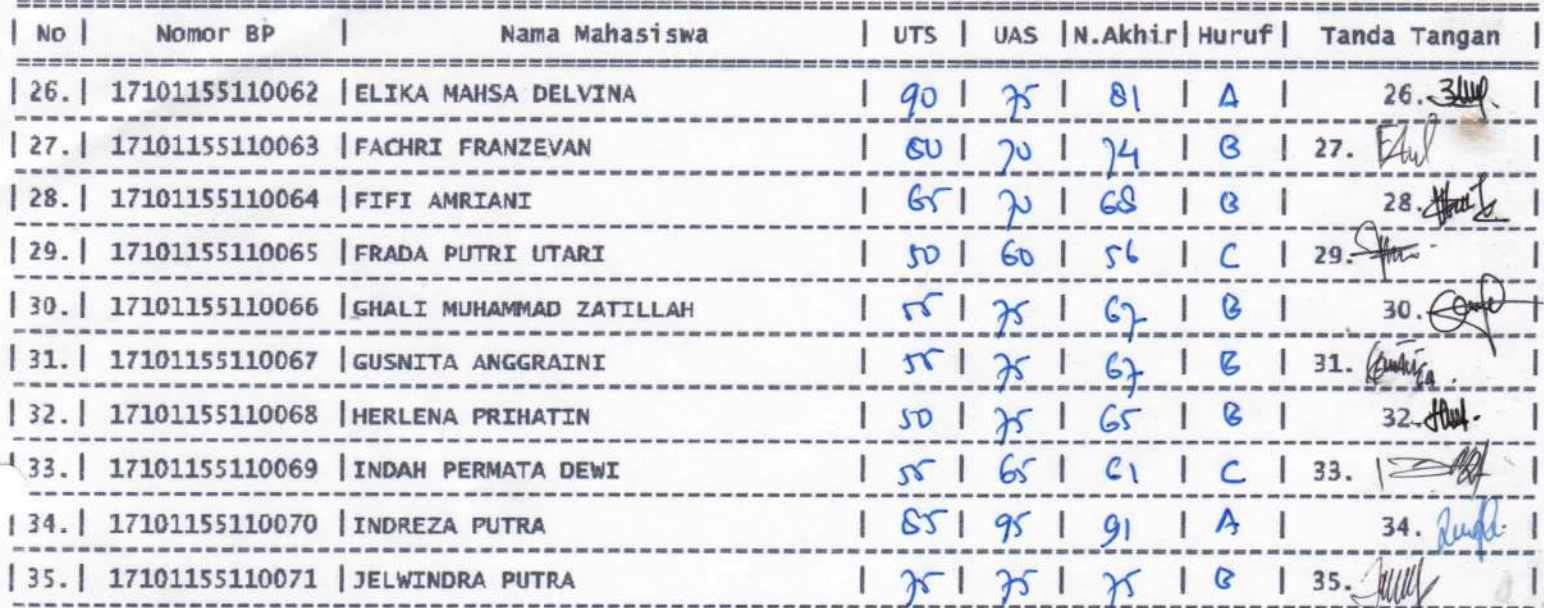 | No | Nomor BP | Nama Mahasiswa | UTS | UAS | N.Akhir | Huruf | Tanda Tangan |
| 26. | 17101155110062 | ELIKA MAHSA DELVINA | 90 | 75 | 81 | A | 26. |
| 27. | 17101155110063 | FACHRI FRANZEVAN | 80 | 70 | 74 | B | 27. |
| 28. | 17101155110064 | FIFI AMRIANI | 65 | 70 | 68 | B | 28. |
| 29. | 17101155110065 | FRADA PUTRI UTARI | 50 | 60 | 56 | C | 29. |
| 30. | 17101155110066 | GHALI MUHAMMAD ZATILLAH | 55 | 75 | 67 | B | 30. |
| 31. | 17101155110067 | GUSNITA ANGGRAINI | 55 | 75 | 67 | B | 31. |
| 32. | 17101155110068 | HERLENA PRIHATIN | 50 | 75 | 65 | B | 32. |
| 33. | 17101155110069 | INDAH PERMATA DEWI | 55 | 65 | 61 | C | 33. |
| 34. | 17101155110070 | INDREZA PUTRA | 85 | 95 | 91 | A | 34. |
| 35. | 17101155110071 | JELWINDRA PUTRA | 75 | 75 | 75 | B | 35. |